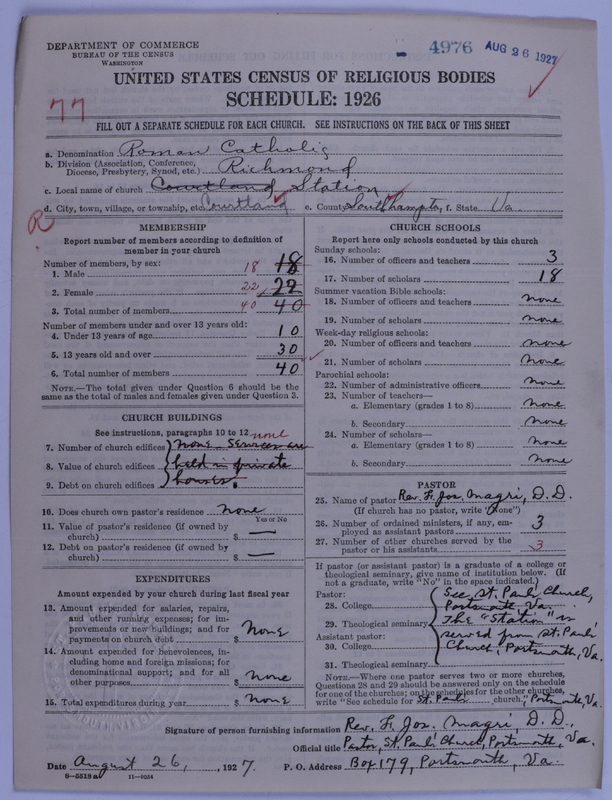 DEPARTMENT OF COMMERCE
BUREAU OF THE CENSUS
WASHINGTON
4976 AUG 26 1927
UNITED STATES CENSUS OF RELIGIOUS BODIES
SCHEDULE: 1926
77
FILL OUT A SEPARATE SCHEDULE FOR EACH CHURCH. SEE INSTRUCTIONS ON THE BACK OF THIS SHEET
a. Denomination Roman Catholic
b. Division (Association, Conference, Diocese, Presbytery, Synod, etc.) Richmond
c. Local name of church Courtland Station
d. City, town, village, or township, etc. Courtland e. County Southampton f. State Va.
R
MEMBERSHIP
Report number of members according to definition of
member in your church
Number of members, by sex:
1. Male 18 18
2. Female 22 22
3. Total number of members 40 40
Number of members under and over 13 years old:
4. Under 13 years of age 10
5. 13 years old and over 30
6. Total number of members 40
NOTE.—The total given under Question 6 should be
same as the total of males and females given under Question 3.
CHURCH BUILDINGS
See instructions, paragraphs 10 to 12 none
7. Number of church edifices none Services are
8. Value of church edifices held in private
9. Debt on church edifices houses
10. Does church own pastor's residence none
Yes or No
11. Value of pastor's residence (if owned by
church) $ —
12. Debt on pastor's residence (if owned by
church) $ —
EXPENDITURES
Amount expended by your church during last fiscal year
13. Amount expended for salaries, repairs,
and other running expenses; for im-
provements or new buildings; and for
payments on church debt $ None
14. Amount expended for benevolences, in-
cluding home and foreign missions; for
denominational support; and for all
other purposes $ None
15. Total expenditures during year $ None
CHURCH SCHOOLS
Report here only schools conducted by this church
Sunday schools:
16. Number of officers and teachers 3
17. Number of scholars 18
Summer vacation Bible schools:
18. Number of officers and teachers none
19. Number of scholars None
Week-day religious schools:
20. Number of officers and teachers none
21. Number of scholars None
Parochial schools:
22. Number of administrative officers none
23. Number of teachers—
a. Elementary (grades 1 to 8) None
b. Secondary None
24. Number of scholars—
a. Elementary (grades 1 to 8) None
b. Secondary None
PASTOR
25. Name of pastor Rev. F. Jos. Magri, D. D.
(If church has no pastor, write "None")
26. Number of ordained ministers, if any, em-
ployed as assistant pastors 3
27. Number of other churches served by the
pastor or his assistants 3
If pastor (or assistant pastor) is a graduate of a college or
theological seminary, give name of institution below. (If
not a graduate, write "No" in the space indicated.)
Pastor: See St. Paul's Church,
28. College Portsmouth Va.
29. Theological seminary The "Station" is
Assistant pastor: served from St. Paul's
30. College Church, Portsmouth, Va.
31. Theological seminary
NOTE.—Where one pastor serves two or more churches,
Questions 28 and 29 should be answered only on the schedule
for one of the churches; on the schedules for the other churches,
write "See schedule for St. Paul's church," Portsmouth, Va.
Signature of person furnishing information Rev. F. Jos. Magri, D. D.
Official title Pastor, St. Paul's Church, Portsmouth, Va.
Date August 26, 1927. P. O. Address Box 179, Portsmouth, Va.
8-5518a 11-9024